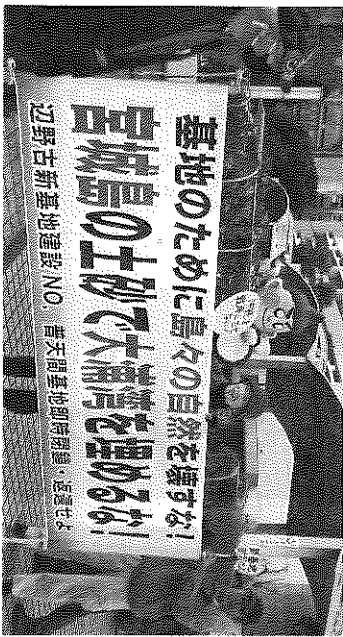 基地のために島々の自然を壊すな!
宮城島の土砂で大浦湾を埋めるな!
辺野古新基地建設NO. 普天間基地即時閉鎖・返還せよ